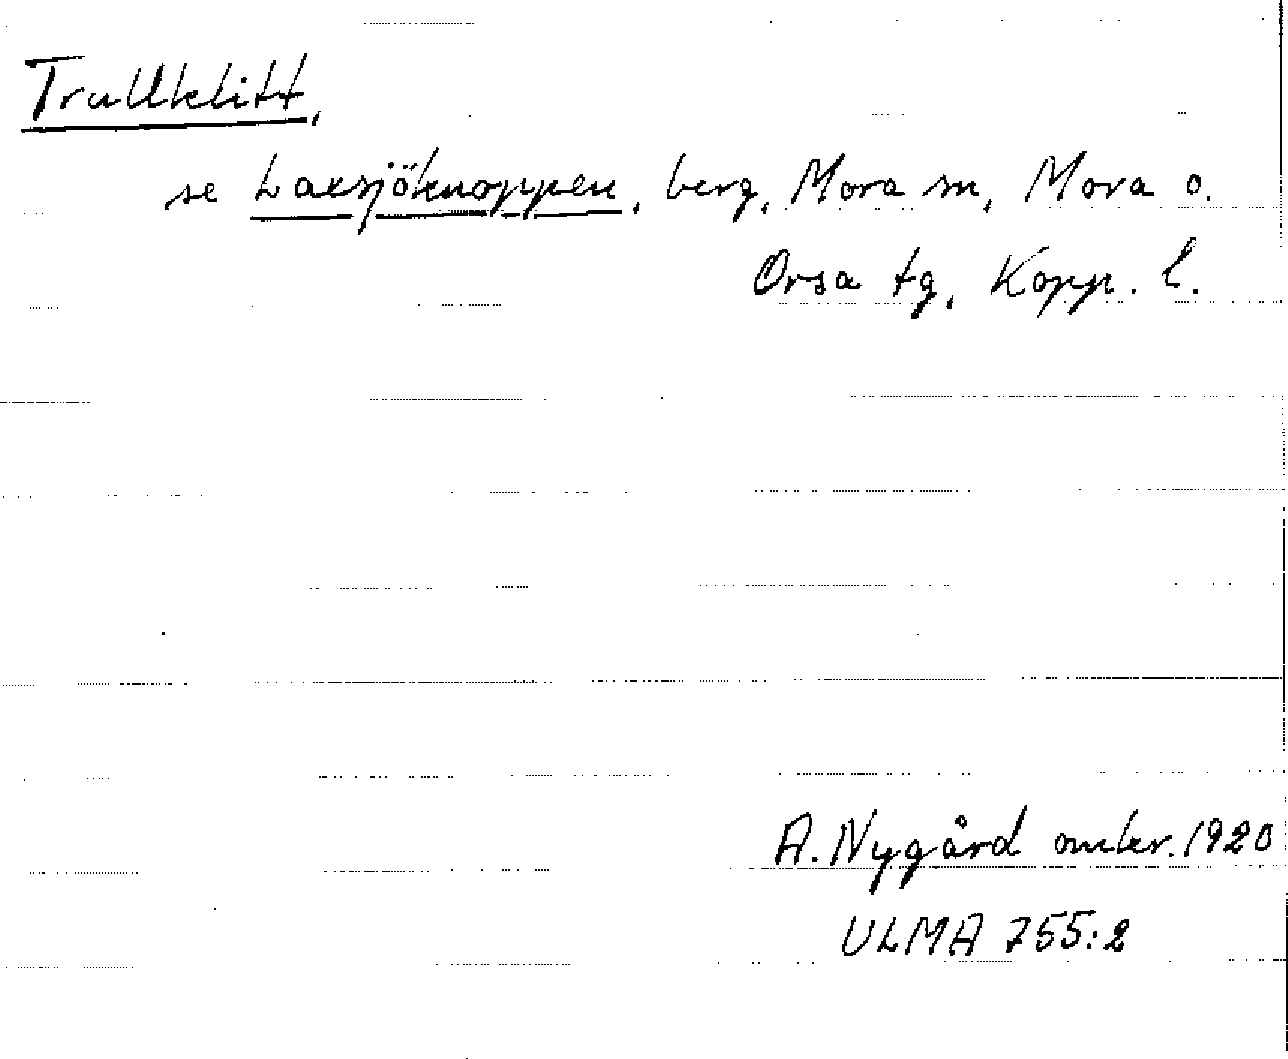 Trullklitt,
se Laxsjöknoppen, berg, Mora sn, Mora o.
Orsa tg, Kopp. l.
A. Nygård omkr. 1920
ULMA 755:2